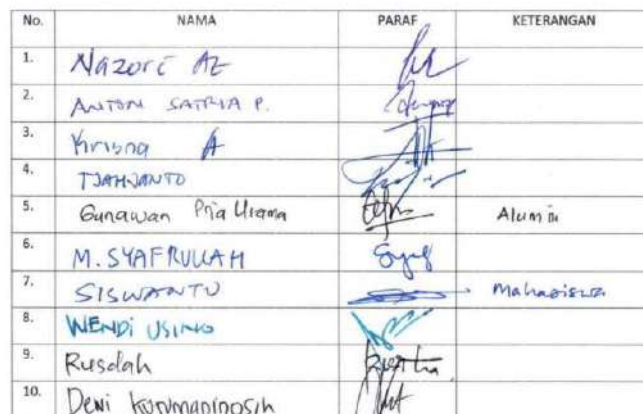 No. NAMA PARAF KETERANGAN
1. Nazori AZ
2. ANTON SATRIA P.
3. Krisna A
4. TJAHJANTO
5. Gunawan Pria Utama Alumni
6. M. SYAFRULLAH
7. SISWANTO Mahasiswa
8. WENDi USiNO
9. Rusdah
10. Dewi